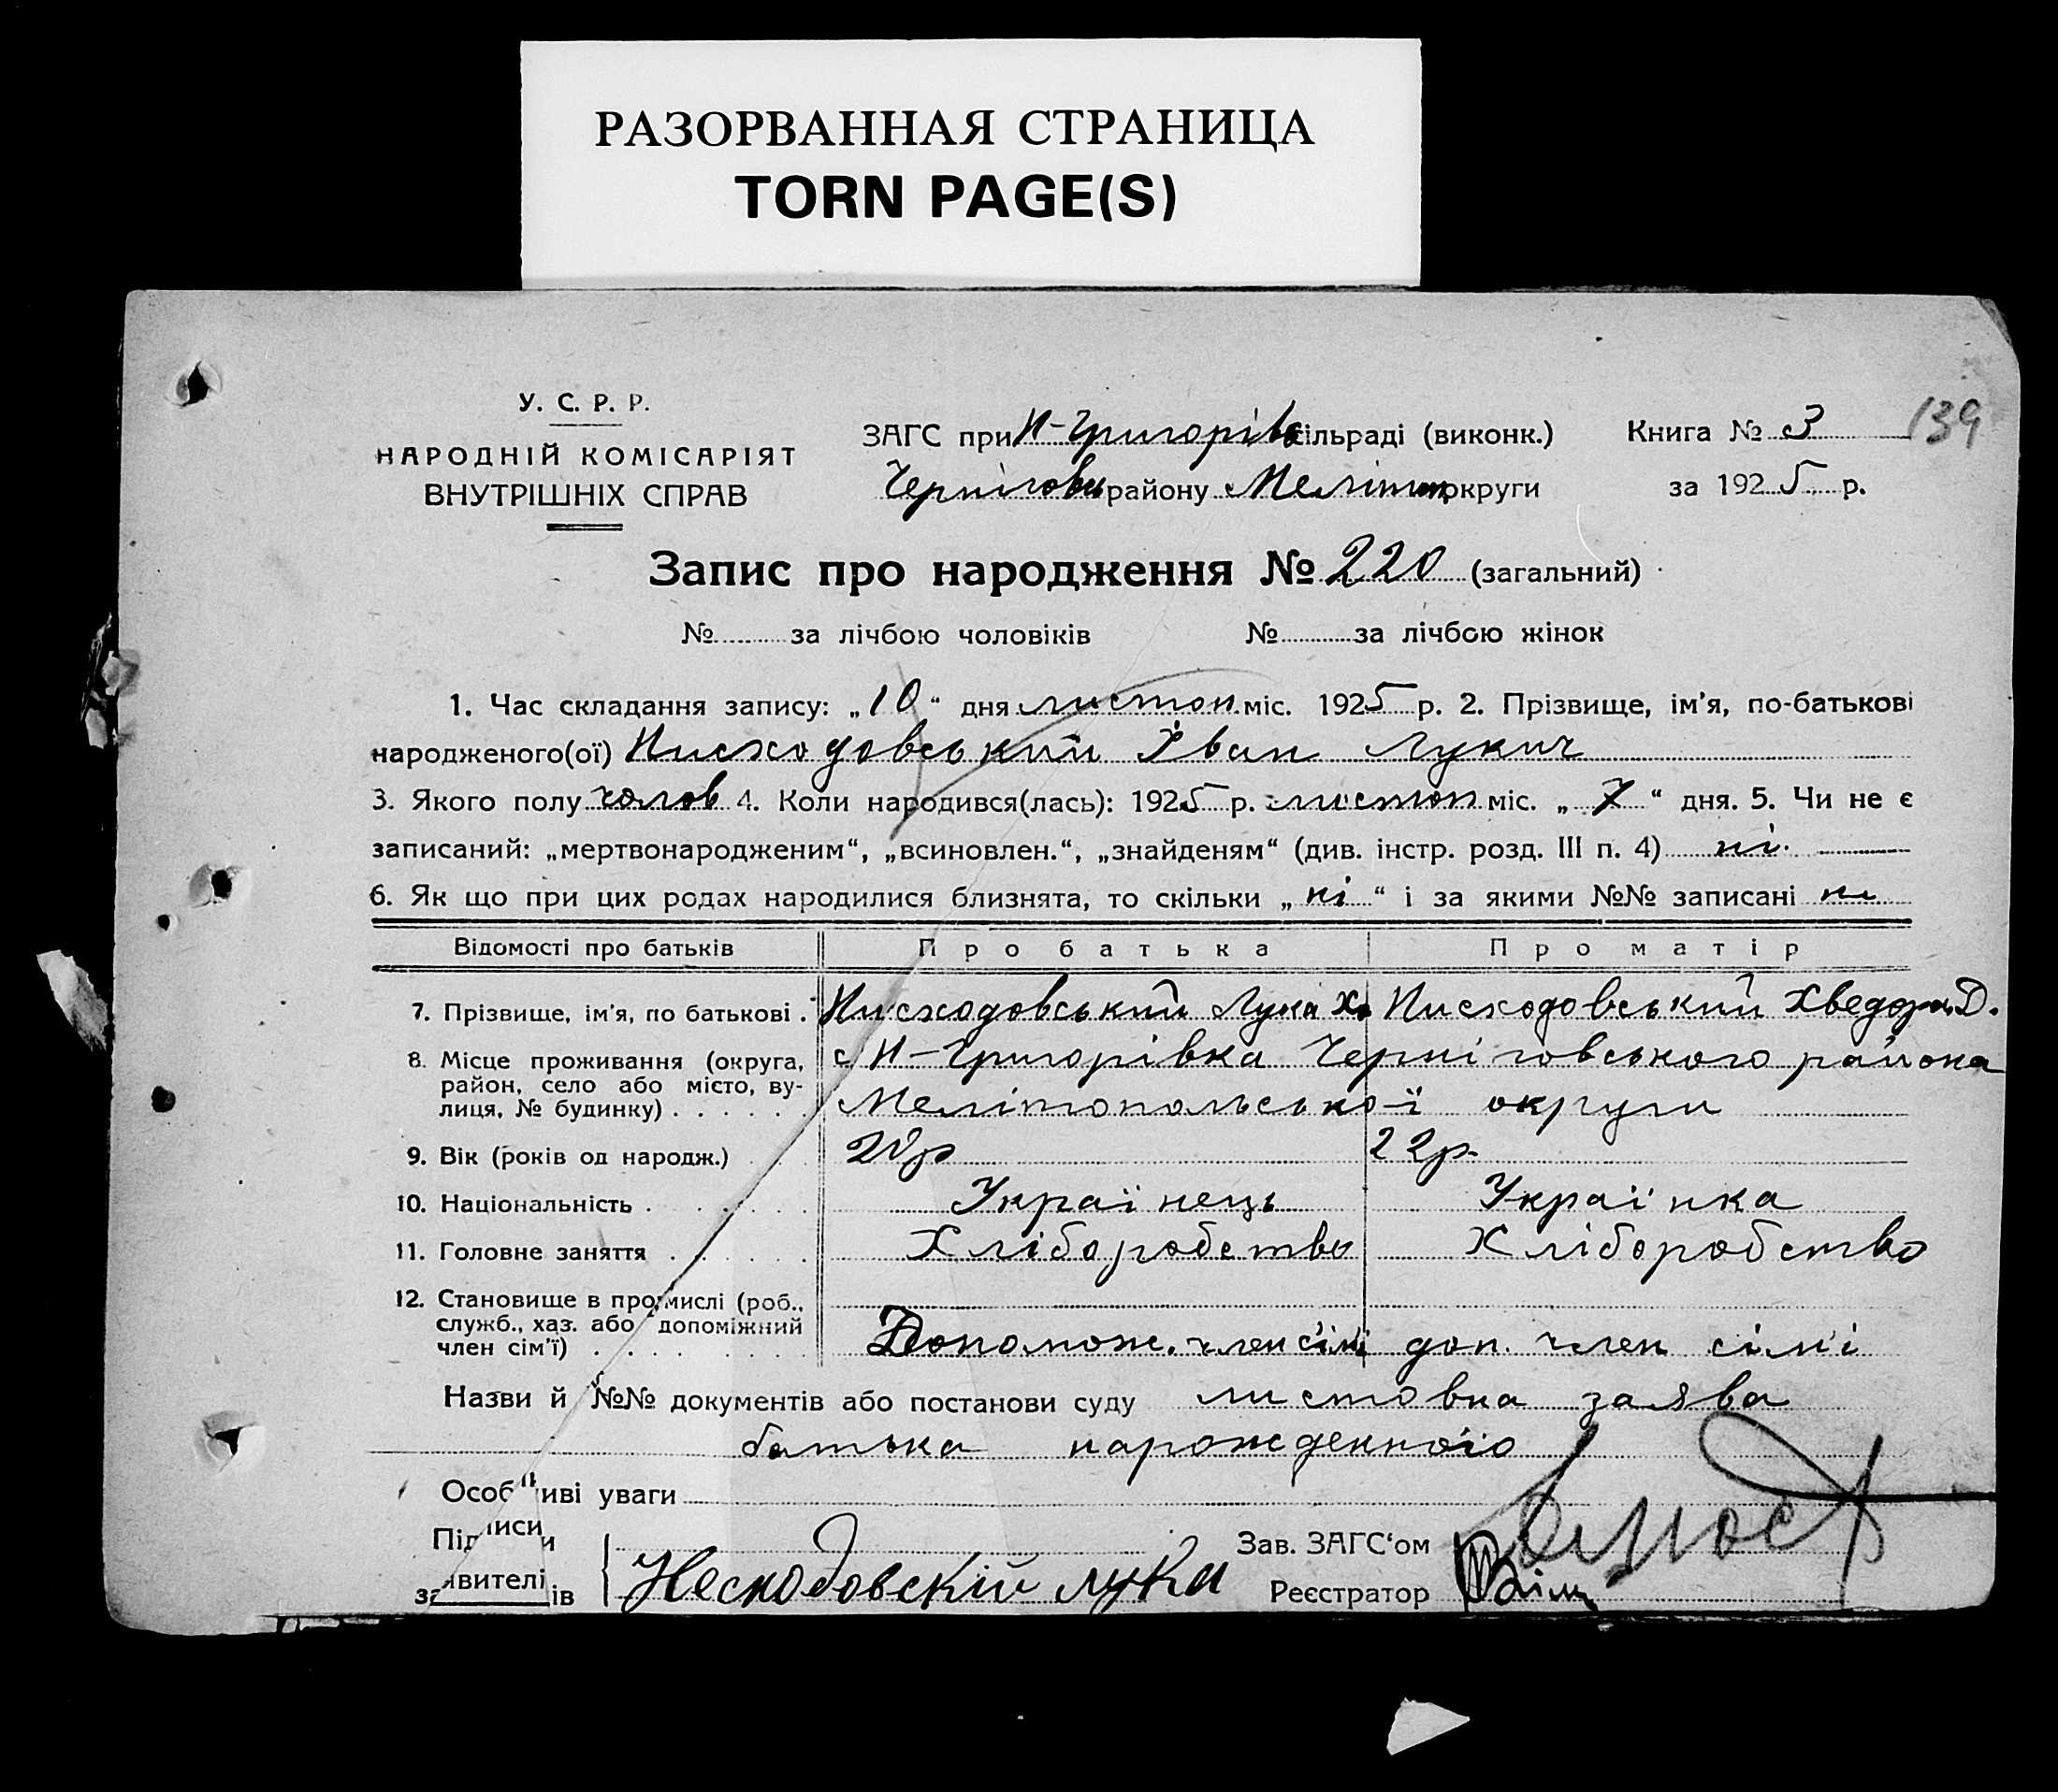 РАЗОРВАННАЯ СТРАНИЦА
TORN PAGE(S)
У. С. Р. Р.
НАРОДНІЙ КОМІСАРІЯТ
ВНУТРІШНІХ СПРАВ
ЗАГС при Н-Григорівс сільраді (виконк.)
Черніговськ району Меліт округи
Книга № 3
139
за 1925 р.
Запис про народження № 220 (загальний)
№ за лічбою чоловіків № за лічбою жінок
1. Час складання запису: „10“ дня листоп. міс. 1925 р. 2. Прізвище, ім'я, по-батькові
народженого(ої) Нисходовський Іван Лукич
3. Якого полу чолов 4. Коли народився(лась): 1925 р. листоп міс. „7“ дня. 5. Чи не є
записаний: „мертвонародженим“, „всиновлен.“, „знайденям“ (див. інстр. розд. III п. 4) ні.
6. Як що при цих родах народилися близнята, то скільки „ні“ і за якими №№ записані ні
Відомості про батьків Про батька Про матір
7. Прізвище, ім'я, по батькові . Нисходовський Лука Х. Нисходовський Хведора Д.
8. Місце проживання (округа,
район, село або місто, ву-
лиця, № будинку) . . . . . .
с Н-Григорівка Чернiговського района
Мелітопольської округи
9. Вік (років од народж.) 20р 22р.
10. Національність . Українець Українка
11. Головне заняття . Хліборобство Хліборобство
12. Становище в промислі (роб.,
служб., хаз. або допоміжний
член сім'ї) . . . . .
Допомож. член сім'ї доп. член сім'ї
Назви й №№ документів або постанови суду листовна заява
батька нарожденного
Особливі уваги
Підписи
заявителів
Несходовскій лука
Зав. ЗАГС'ом
Реєстратор